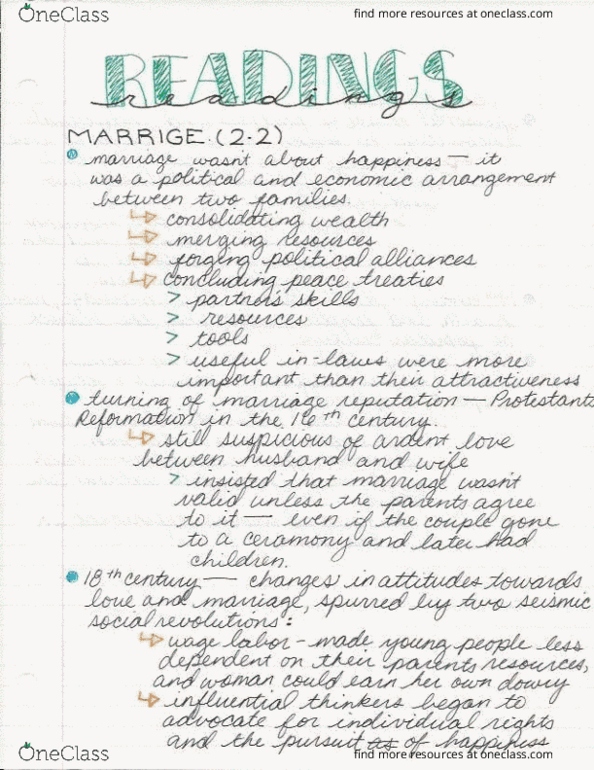 OneClass
find more resources at oneclass.com
READINGS
readings
MARRIGE.(2.2)
marriage wasn't about happiness — it
was a political and economic arrangement
between two families.
consolidating wealth
merging resources
forging political alliances
concluding peace treaties
> partners skills
> resources
> tools
> useful in-laws were more
important than their attractiveness
turning of marriage reputation — Protestants
Reformation in the 16th century.
still suspicious of ardent love
between husband and wife
> insisted that marriage wasn't
valid unless the parents agree
to it — even if the couple gone
to a ceremony and later had
children.
18th century — changes in attitudes towards
love and marriage, spurred by two seismic
social revolutions:
wage labor - made young people less
dependent on their parents resources,
and woman could earn her own dowry
influential thinkers began to
advocate for individual rights
and the pursuit as of happiness
OneClass
find more resources at oneclass.com